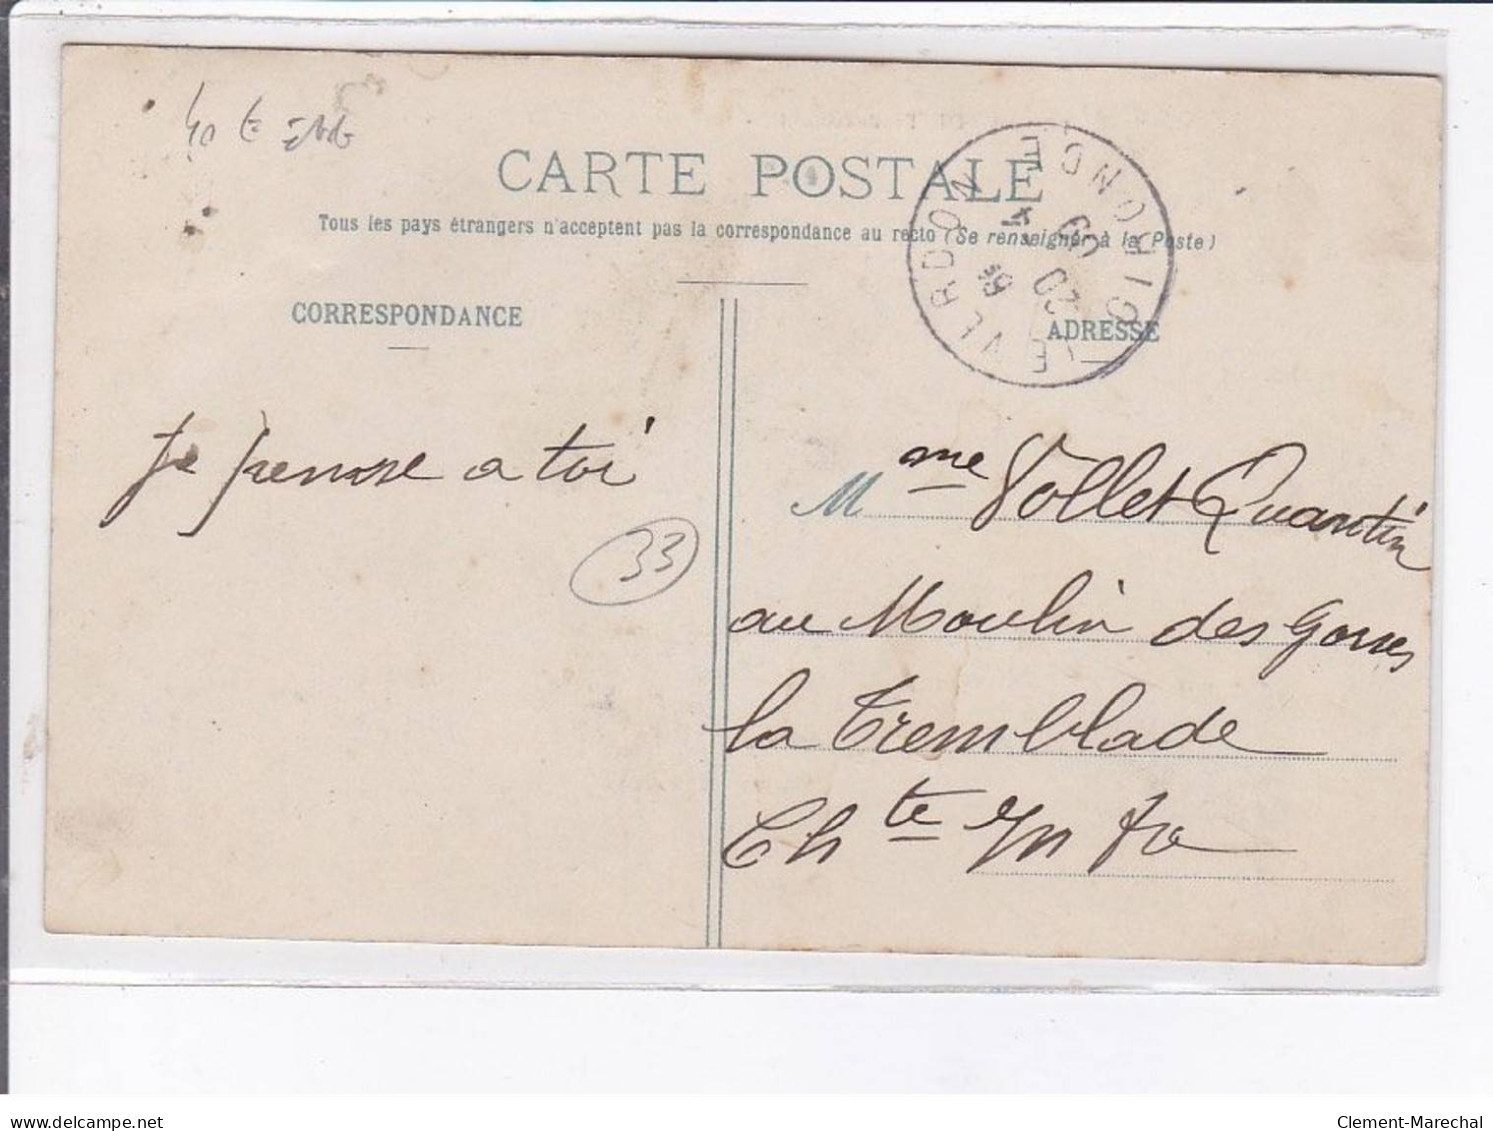 CARTE POSTALE
Tous les pays étrangers n'acceptent pas la correspondance au recto (Se renseigner à la Poste)
CORRESPONDANCE
ADRESSE
LE VERDON
GIRONDE
Je pensse a toi
33
Mme Vollet Quantin
au Moulin des Gorses
la Tremblade
Chte
delcampe.net
Clement-Marechal